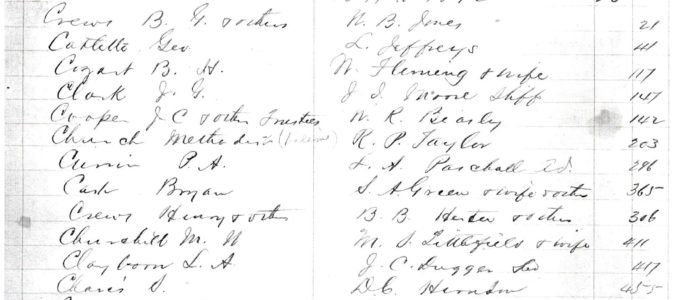 Crews B. G. & others N. B. Jones 21
Cattello Geo L. Jeffreys 41
Cozart B. H. W. Fleming & wife 117
Clark J. G. J. I. Moore Shff 147
Cooper J C & others Trustees W. R. Beasly 142
Church Methodist R. P. Taylor 203
Currin P. A. L. A. Paschall Ad. 296
Cash Bryan S. A Green & wife & others 365
Crews Henry & others B. B. Hester & others 306
Churchill M. N M. S. Littlefield & wife 411
Clayborn L. A J. C. Dugger 417
S. D. C. Herndon 455